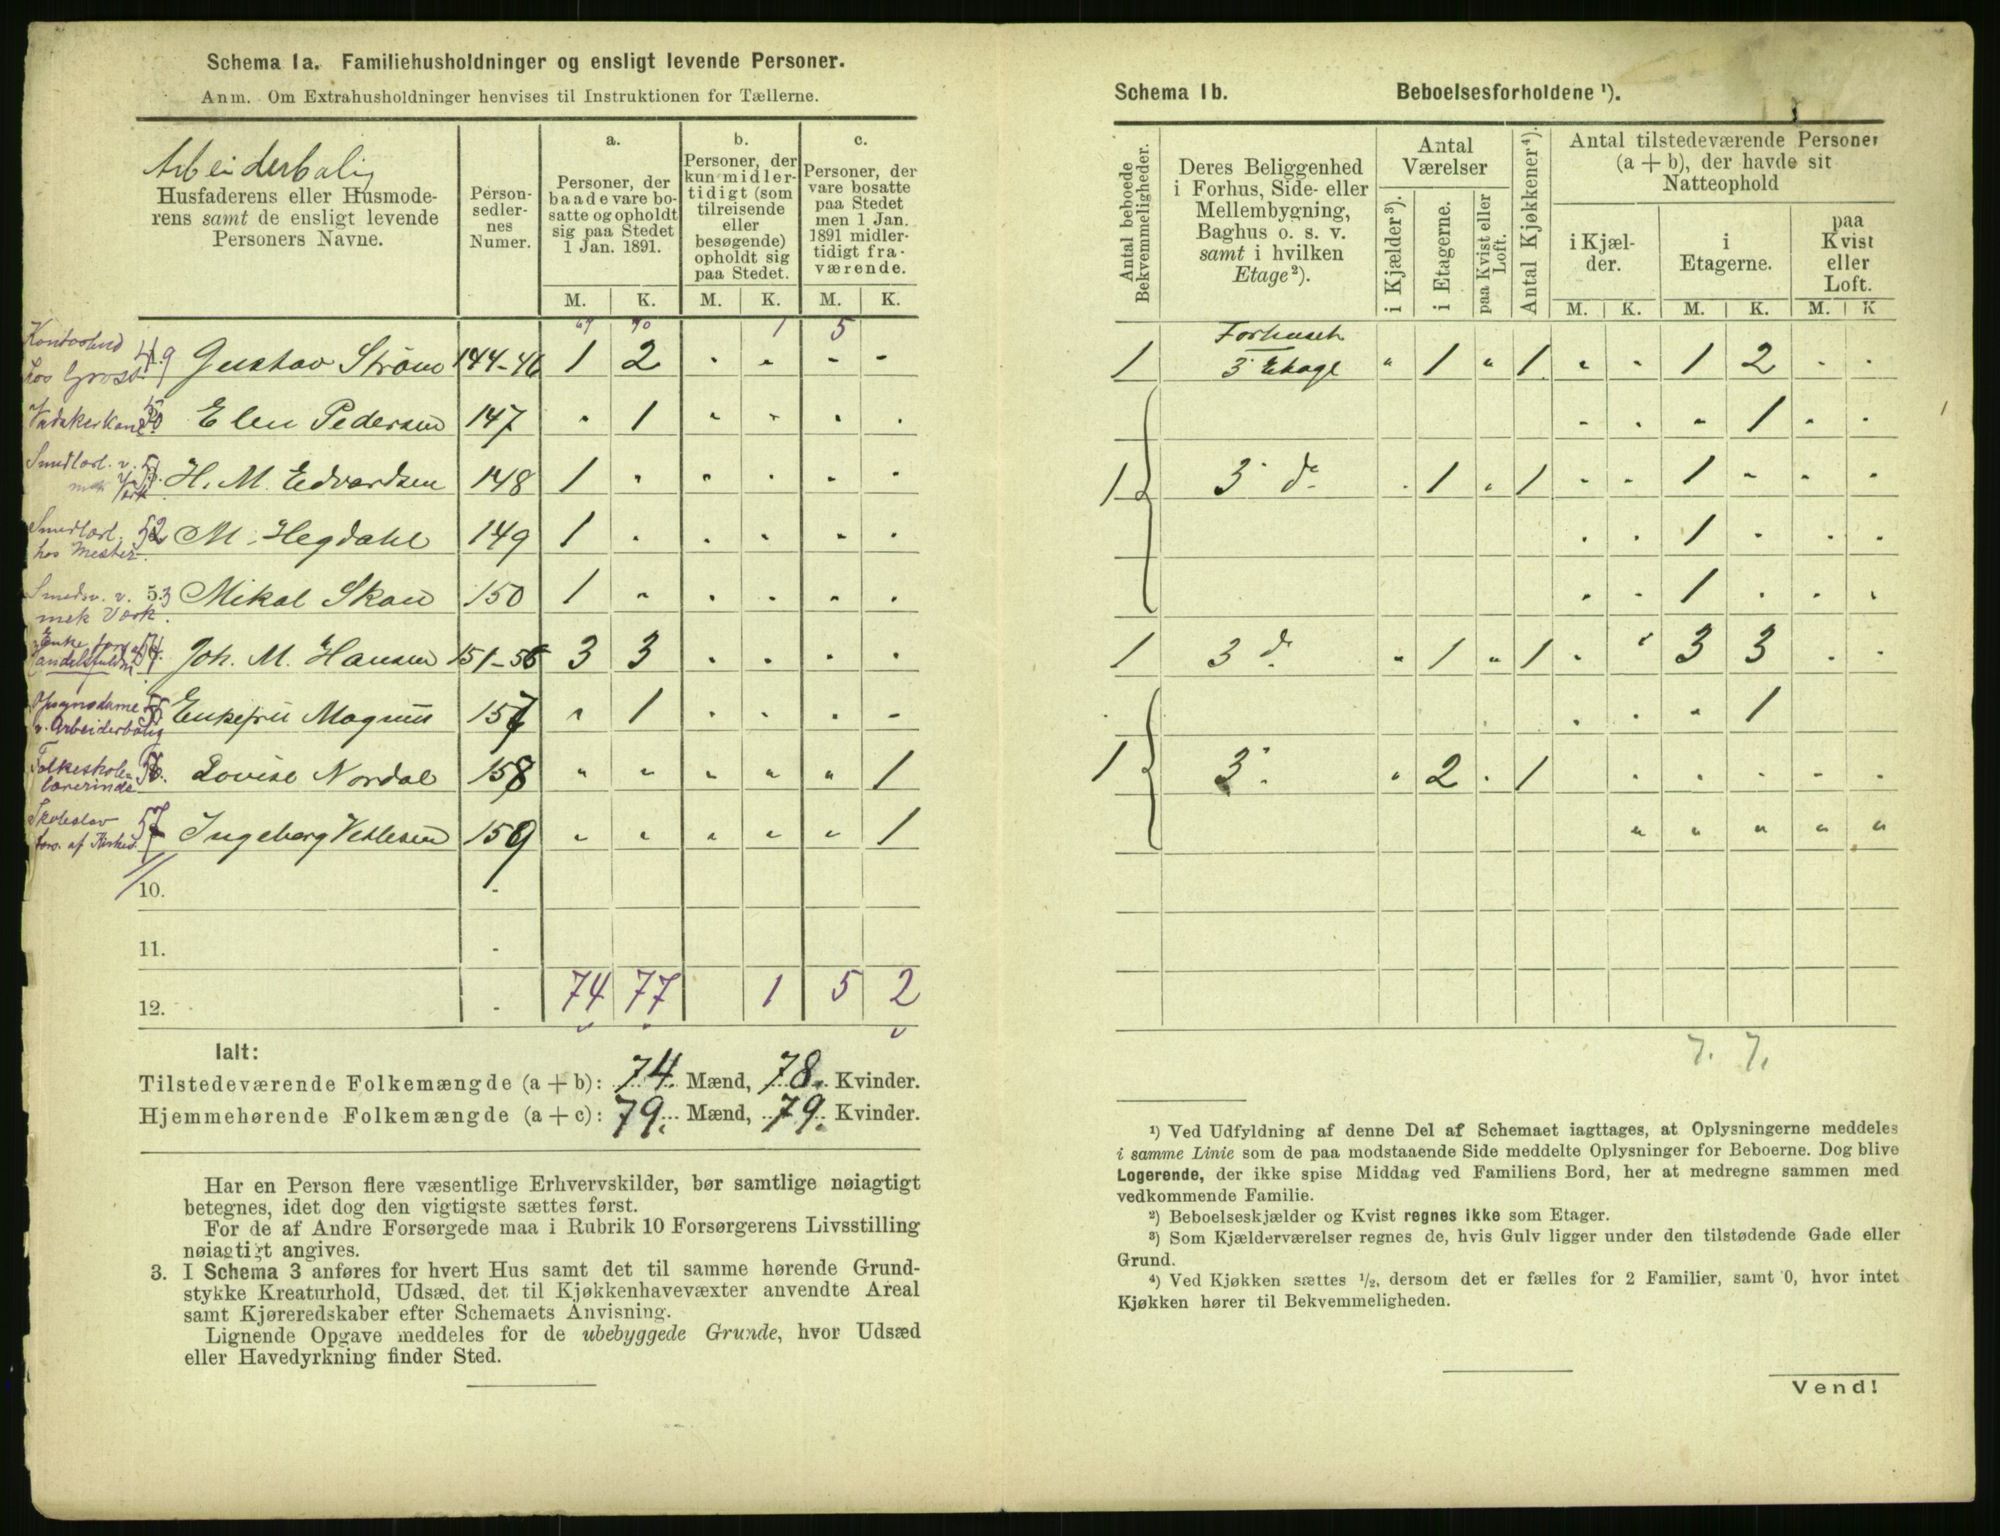 Schema 1a. Familiehusholdninger og ensligt levende Personer.
Anm. Om Extrahusholdninger henvises til Instruktionen for Tællerne.
Arbeiderbolig
Husfaderens eller Husmode-
rens samt de ensligt levende
Personers Navne.
Person-
sedler-
nes
Numer.
a.
Personer, der
baade vare bo-
satte og opholdt
sig paa Stedet
1 Jan. 1891.
M. K.
b.
Personer, der
kun midler-
tidigt (som
tilreisende
eller
besøgende)
opholdt sig
paa Stedet.
M. K.
c.
Personer, der
vare bosatte
paa Stedet
men 1 Jan.
1891 midler-
tidigt fra-
værende.
M. K.
69 70 1 5
49 Gustav Strøm 144-46 1 2 " " - -
50 Elen Pedersen 147 " 1 " " " "
51 H. M. Edvardsen 148 1 " " " " "
Smedlærl. 52 M. Hegdahl 149 1 " " " " "
hos Mester.
Smedsv. v. 53 Mikal Skau 150 1 " " " " "
mek Værk.
54 Joh. M. Hansen 151-56 3 3 " " " "
55 Enkefru Magnus 157 " 1 " " " "
v. Arbeiderbolig
Folkeskole 56. Lovise Nordal 158 " " " " " 1
lærerinde
57 Ingeborg Vetlesen 159 " " " " " 1
10.
11.
12. 74 77 1 5 2
Ialt:
Tilstedeværende Folkemængde (a + b): 74. Mænd, 78. Kvinder.
Hjemmehørende Folkemængde (a + c): 79. Mænd, 79. Kvinder.
Har en Person flere væsentlige Erhvervskilder, bør samtlige nøiagtigt
betegnes, idet dog den vigtigste sættes først.
For de af Andre Forsørgede maa i Rubrik 10 Forsørgerens Livsstilling
nøiagtigt angives.
3. I Schema 3 anføres for hvert Hus samt det til samme hørende Grund-
stykke Kreaturhold, Udsæd, det til Kjøkkenhavevæxter anvendte Areal
samt Kjøreredskaber efter Schemaets Anvisning.
Lignende Opgave meddeles for de ubebyggede Grunde, hvor Udsæd
eller Havedyrkning finder Sted.
Schema 1b. Beboelsesforholdene ¹).
Antal beboede
Bekvemmeligheder.
Deres Beliggenhed
i Forhus, Side- eller
Mellembygning,
Baghus o. s. v.
samt i hvilken
Etage²).
Antal
Værelser
i Kjælder³).
i Etagerne.
paa Kvist eller
Loft.
Antal Kjøkkener⁴).
Antal tilstedeværende Personer
(a + b), der havde sit
Natteophold
i Kjæl-
der.
i
Etagerne.
paa
Kvist
eller
Loft.
M. K. M. K. M. K
Forhuset
1 3 Etage " 1 " 1 " " 1 2 " "
" " " 1 " "
1 3 do " 1 " 1 " " 1 " " "
" " 1 " " "
" " 1 " " "
1 3 do " 1 " 1 " " 3 3 " "
" " " 1
1 3. " 2 " 1 " " " " "
" " " " "
7. 7.
¹) Ved Udfyldning af denne Del af Schemaet iagttages, at Oplysningerne meddeles
i samme Linie som de paa modstaaende Side meddelte Oplysninger for Beboerne. Dog blive
Logerende, der ikke spise Middag ved Familiens Bord, her at medregne sammen med
vedkommende Familie.
²) Beboelseskjælder og Kvist regnes ikke som Etager.
³) Som Kjælderværelser regnes de, hvis Gulv ligger under den tilstødende Gade eller
Grund.
⁴) Ved Kjøkken sættes ½, dersom det er fælles for 2 Familier, samt 0, hvor intet
Kjøkken hører til Bekvemmeligheden.
Vend!